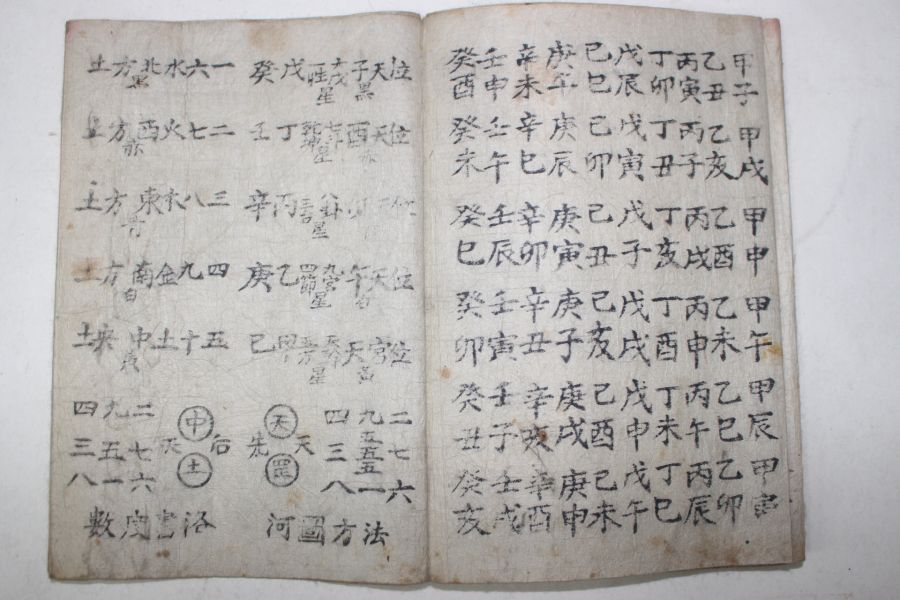 甲子 乙丑 丙寅 丁卯 戊辰 己巳 庚午 辛未 壬申 癸酉
甲戌 乙亥 丙子 丁丑 戊寅 己卯 庚辰 辛巳 壬午 癸未
甲申 乙酉 丙戌 丁亥 戊子 己丑 庚寅 辛卯 壬辰 癸巳
甲午 乙未 丙申 丁酉 戊戌 己亥 庚子 辛丑 壬寅 癸卯
甲辰 乙巳 丙午 丁未 戊申 己酉 庚戌 辛亥 壬子 癸丑
甲寅 乙卯 丙辰 丁巳 戊午 己未 庚申 辛酉 壬戌 癸亥
癸戊 星 子黑天位
壬丁 星 酉天位
辛丙 星
庚乙 星 午白天位
己 星 天宮黃位
四九二
三五五五七
八一六
先天 天罡
河圖方法
一六水北黑方土
二七火西赤方土
三八木東靑方土
四九金南白方土
五十土中黃央土
四九二
三五七
八一六
后天 中土
洛書度數